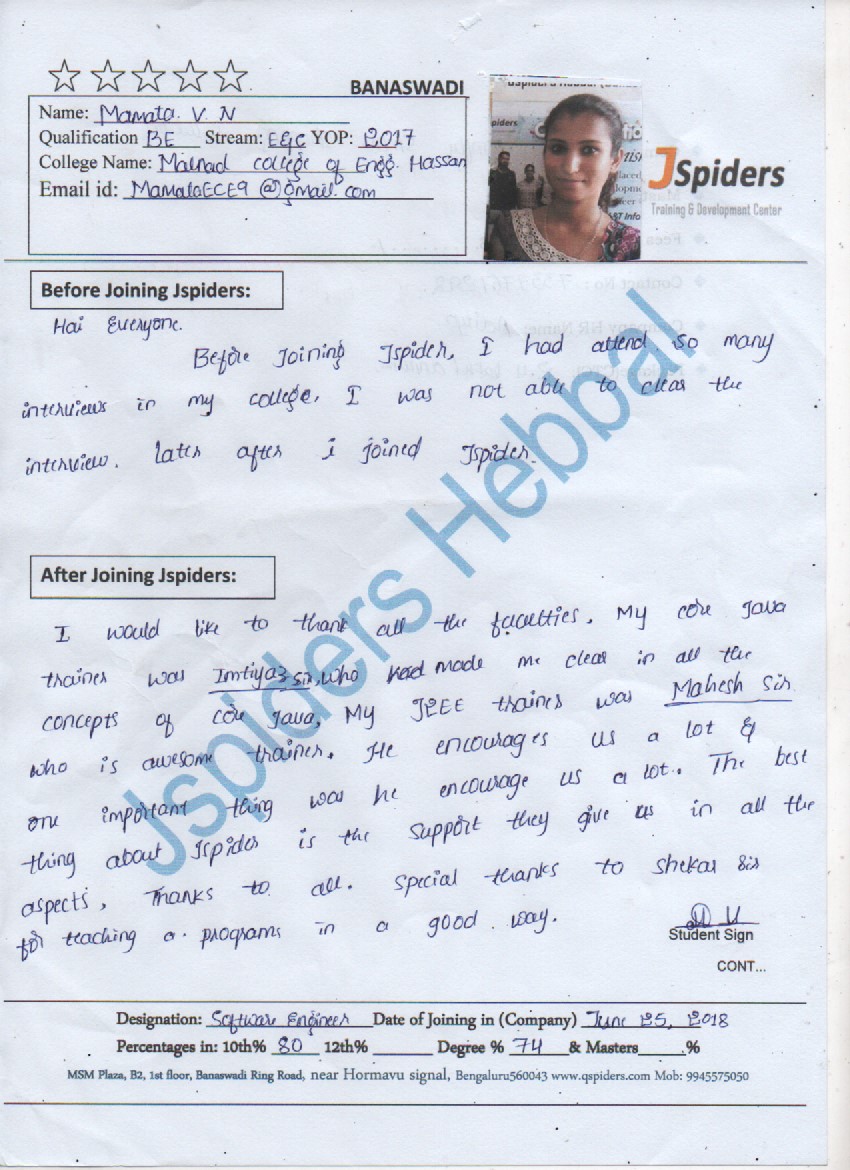 BANASWADI
Name: Mamata. V. N
Qualification BE Stream: E&C YOP: 2017
College Name: Malnad college of Engg. Hassan
Email id: MamataECE9@gmail.com
JSpiders
Training & Development Center
Before Joining Jspiders:
Hai Everyone.
Before Joining Jspider, I had attend so many
interviews in my college. I was not able to clear the
interview. Later after i joined Jspider.
Jspiders Hebbal
After Joining Jspiders:
I would like to thank all the faculties. My core Java
trainer was Imtiyaz sir, who made me clear in all the
concepts of core Java, My J2EE trainer was Mahesh Sir
who is awesome trainer. He encourages us a lot &
one important thing was he encourage us a lot.. The best
thing about Jspider is the support they give us in all the
aspects, Thanks to all. Special thanks to Shekar Sir
for teaching a programs in a good way.
Student Sign
CONT...
Designation: Software Engineer Date of Joining in (Company) June 25, 2018
Percentages in: 10th% 80 12th% Degree % 74 & Masters .%
MSM Plaza, B2, 1st floor, Banaswadi Ring Road, near Hormavu signal, Bengaluru560043 www.qspiders.com Mob: 9945575050